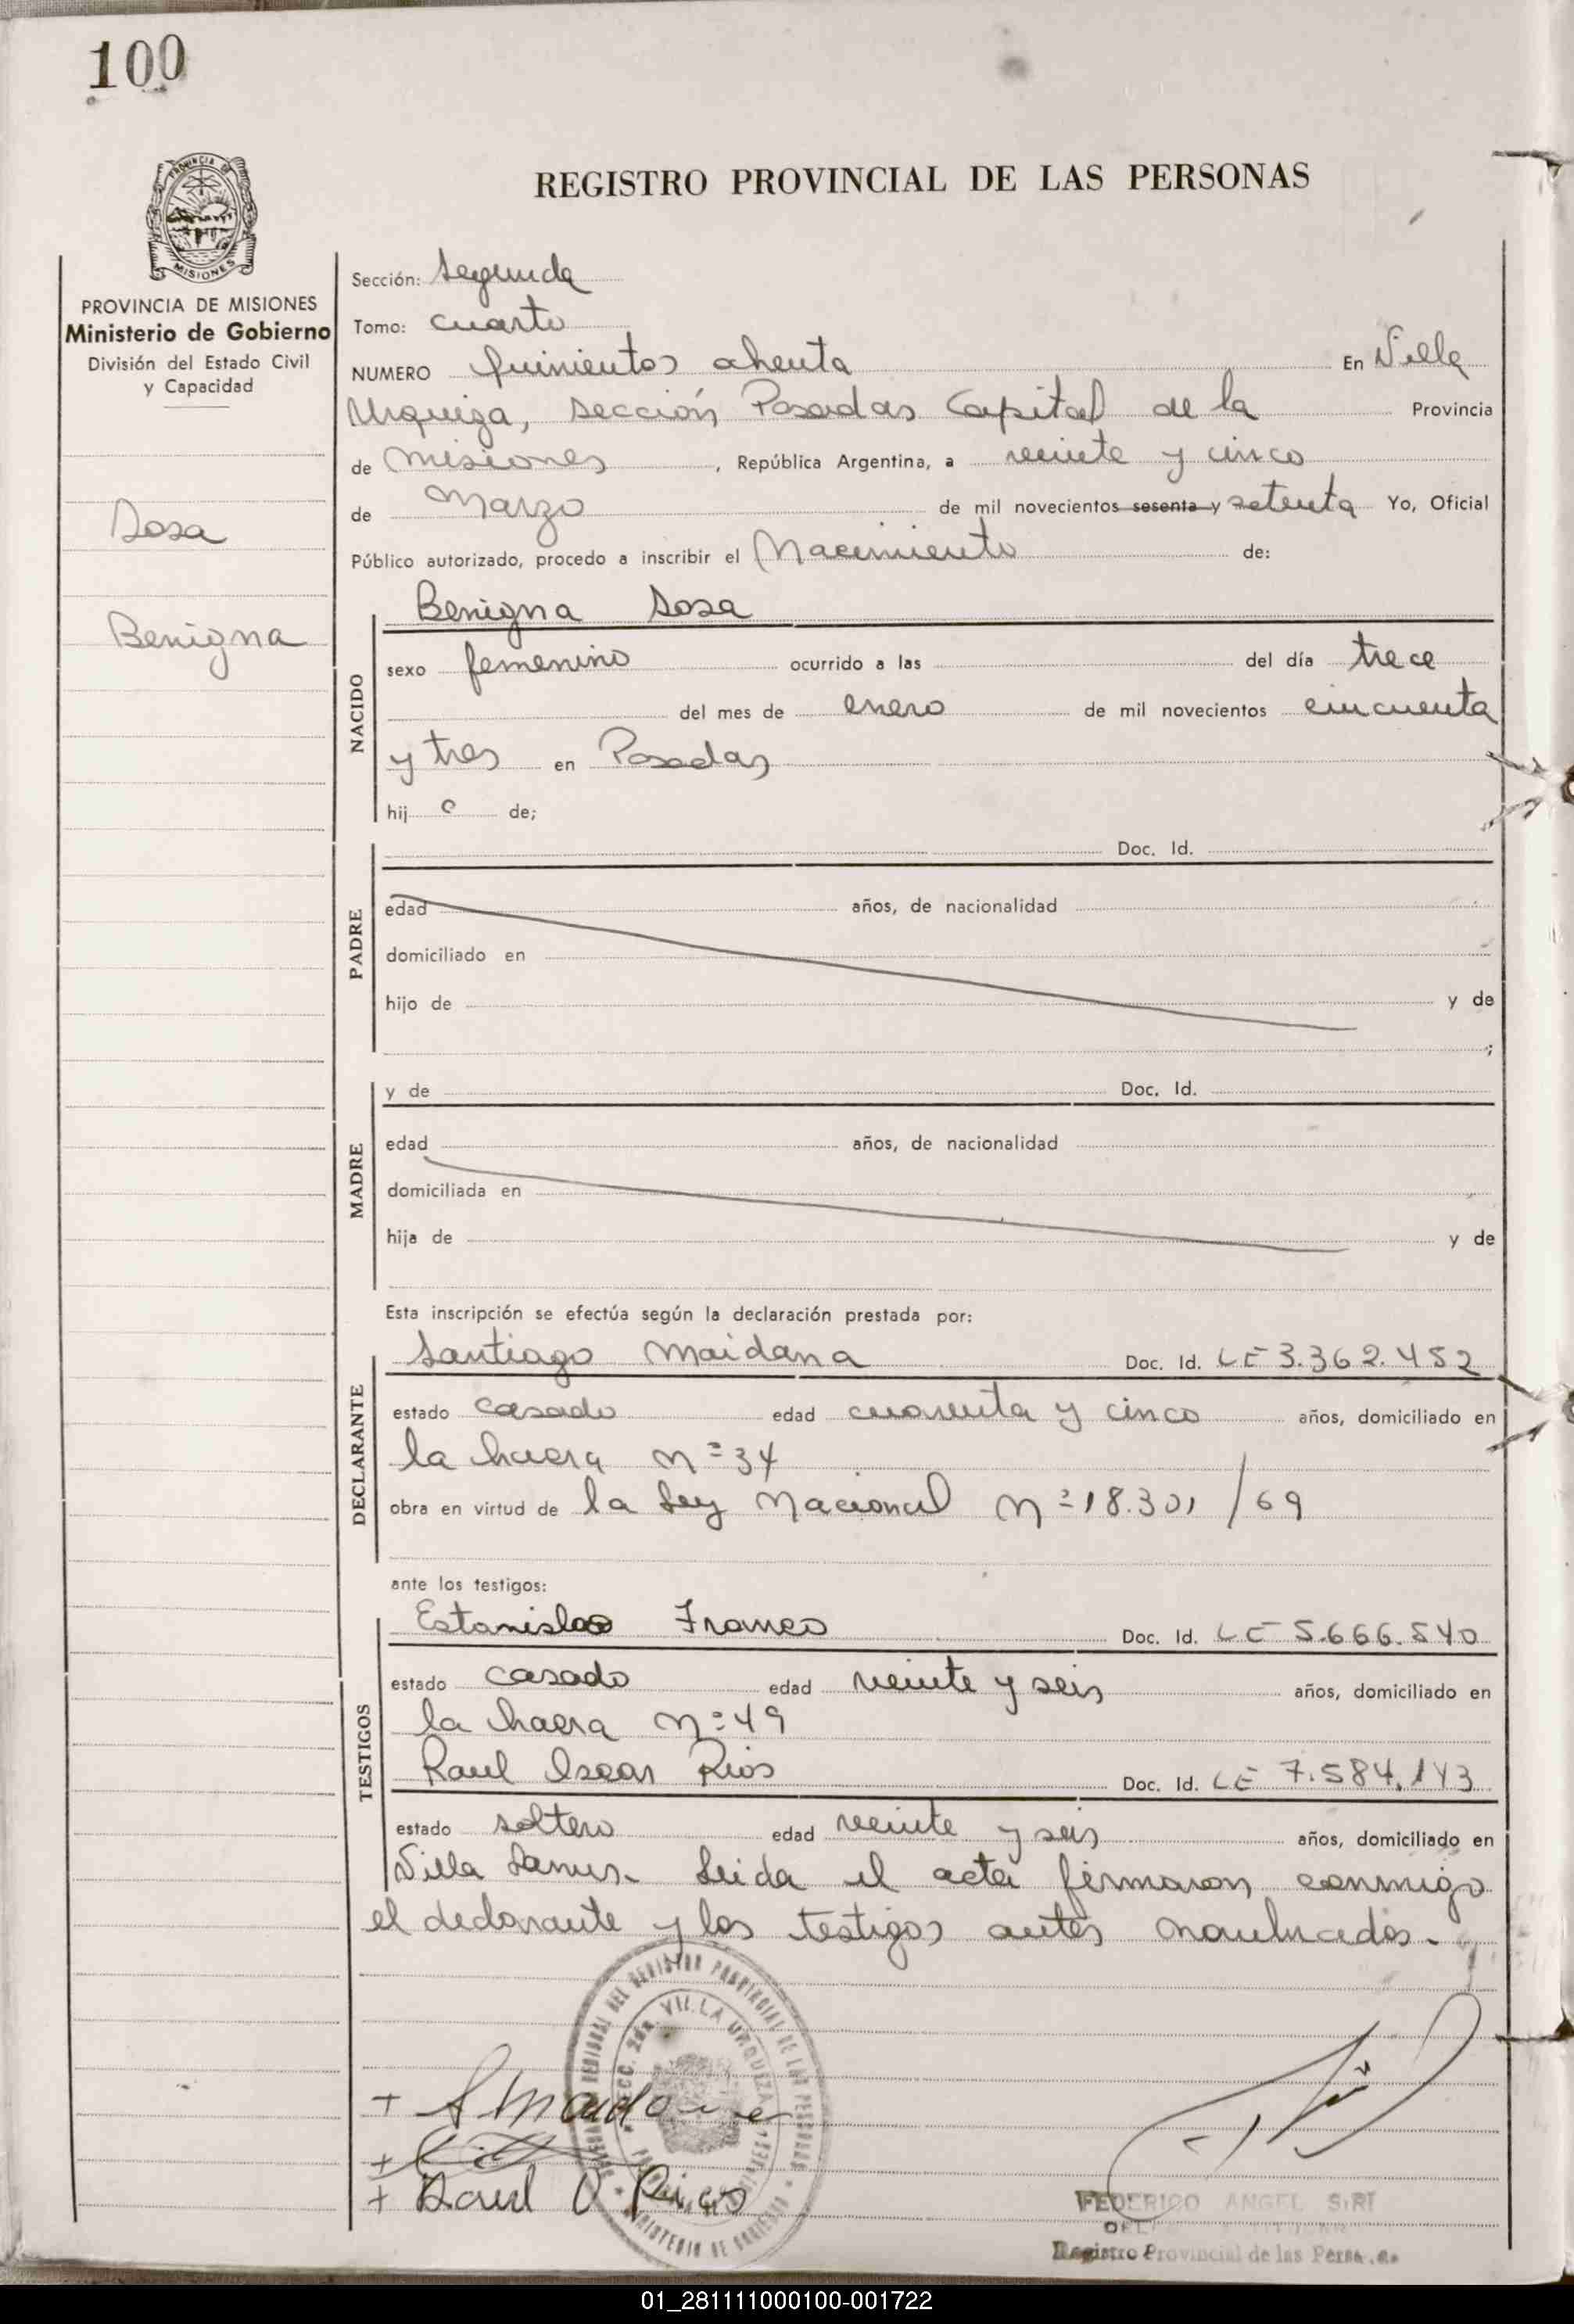 100
PROVINCIA DE
MISIONES
PROVINCIA DE MISIONES
Ministerio de Gobierno
División del Estado Civil
y Capacidad
Sosa
Benigna
REGISTRO PROVINCIAL DE LAS PERSONAS
Sección: Segunda
Tomo: cuarto
NUMERO Quinientos ochenta En Villa
Urquiza, sección Posadas Capital de la Provincia
de Misiones, República Argentina, a veinte y cinco
de Marzo de mil novecientos sesenta y setenta Yo, Oficial
Público autorizado, procedo a inscribir el Nacimiento de:
NACIDO
Benigna Sosa
sexo femenino ocurrido a las del día trece
del mes de enero de mil novecientos cincuenta
y tres en Posadas
hij a de;
PADRE
Doc. Id.
edad años, de nacionalidad
domiciliado en
hijo de y de
;
MADRE
y de Doc. Id.
edad años, de nacionalidad
domiciliada en
hija de y de
Esta inscripción se efectúa según la declaración prestada por:
DECLARANTE
Santiago Maidana Doc. Id. LE 3.362.452
estado casado edad cuarenta y cinco años, domiciliado en
la hacra nº 34
obra en virtud de la Ley Nacional nº 18.301/69
ante los testigos:
TESTIGOS
Estanislao Franco Doc. Id. LE 5.666.540
estado casado edad veinte y seis años, domiciliado en
la hacra nº 49
Raul Oscar Rios Doc. Id. LE 7.584.143
estado soltero edad veinte y seis años, domiciliado en
Villa Lanus. Leida el acta firmaron conmigo
el declarante y los testigos antes nombrados.
VILLA URQUIZA
+
+
+ Raul O. Rios
FEDERICO ANGEL SIRI
Registro Provincial de las
01_281111000100-001722